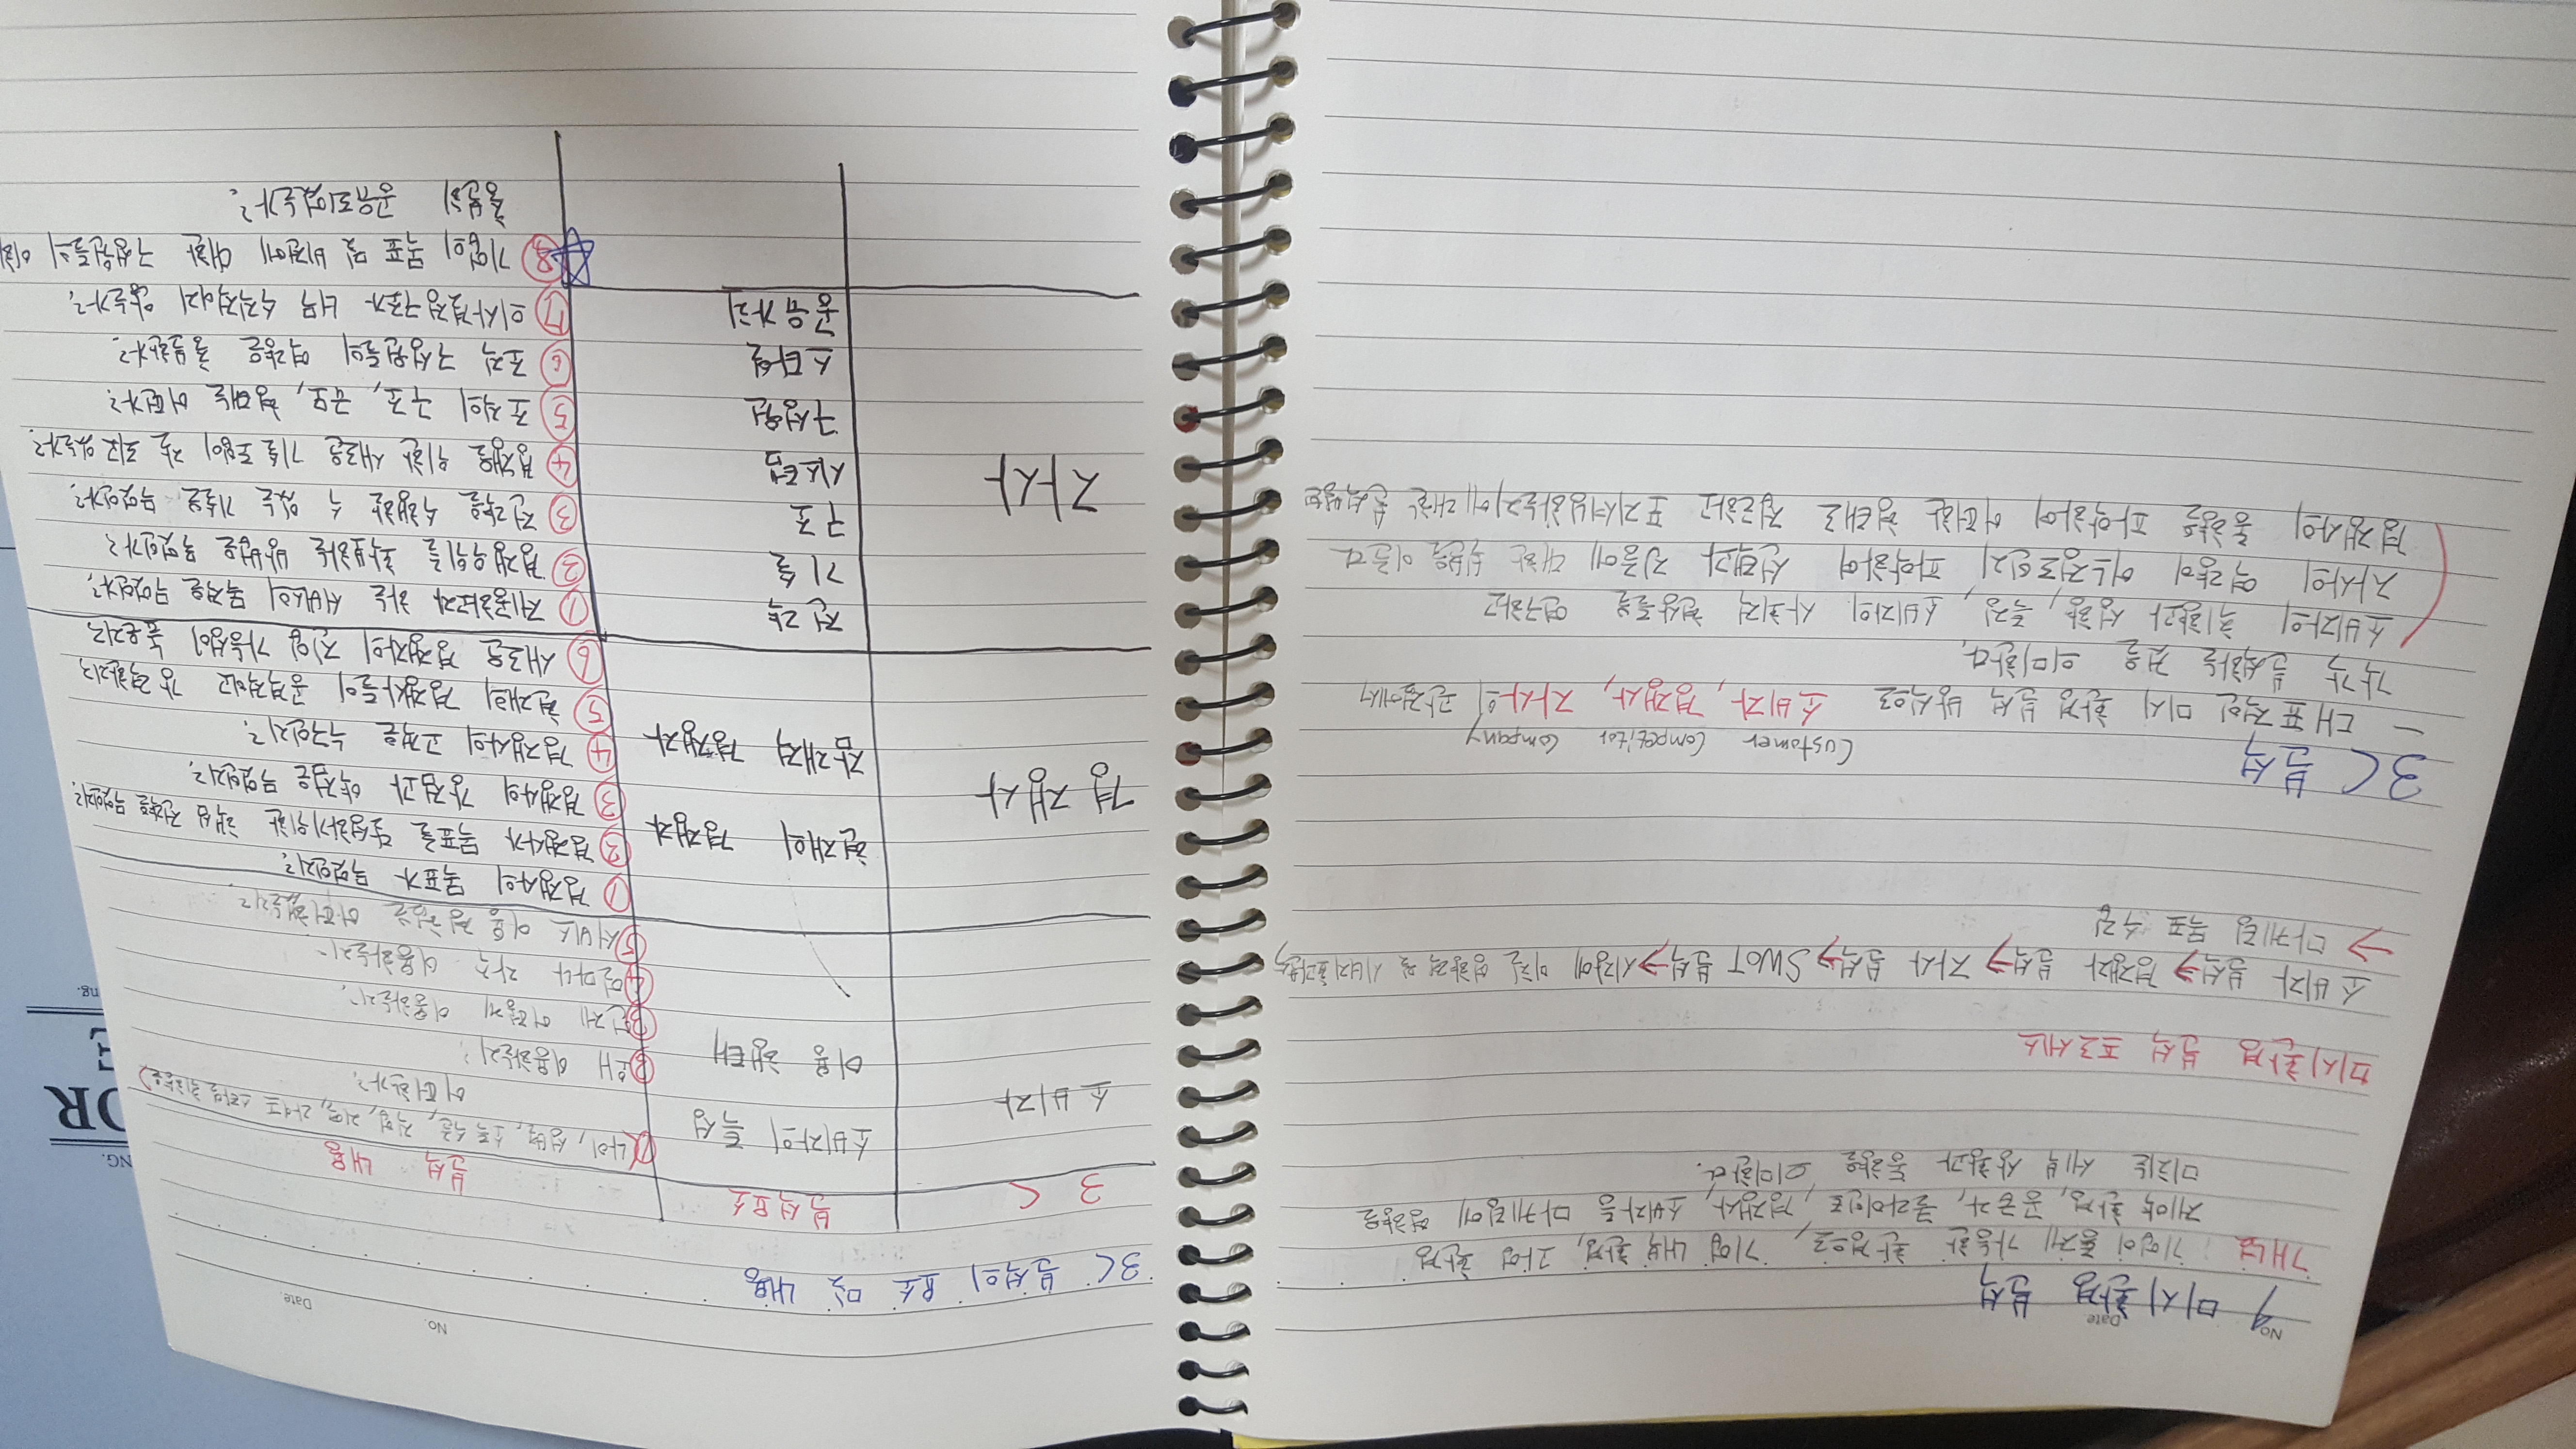 No.
Date.
미시환경 분석
개념 : 기업이 통제 가능한 환경으로, 기업 내부 환경, 과업 환경
제약 환경, 공급자, 클라이언트, 경쟁사, 소비자등 마케팅에 영향을
미치는 세부 상황과 동향을 의미한다.
미시환경 분석 프로세스
소비자 분석→경쟁자 분석→자사 분석→SWOT 분석→시장에 미칠 영향력 및 시너지효과분석
→ 마케팅 목표 수립
3C 분석
Customer Competitor Company
- 대표적인 미시 환경 분석 방식으로 소비자, 경쟁사, 자사의 관점에서
각각 분석하는 것을 의미한다.
소비자의 취향과 성향, 특징, 소비자의 사회적 현상들을 연구하고
자사의 역량이 어느정도인지 파악하여 선택과 집중에 대한 이룬다
경쟁사의 동향을 파악하여 어떠한 형태로 접근하고 포지셔닝하는지에 대한 분석방법
No.
Date.
3C 분석의 요소 및 내용
3C 분석요소 분석 내용
소비자
소비자의 특성
이용 행태
① (나이, 성별, 소득 수준, 직업, 지역, 라이프 스타일 취향은)
어떠한가?
② 왜 이용하는지?
③ 언제 어떻게 이용하는지?
④ 얼마나 자주 이용하는지
⑤ 서비스 이용 경험은 어떠했는지?
경쟁사
현재의 경쟁자
잠재적 경쟁자
① 경쟁사의 목표가 무엇인지?
② 경쟁사가 목표를 달성하기위한 핵심 전략을 무엇인지?
③ 경쟁사의 강점과 약점은 무엇인지?
④ 경쟁사의 고객은 누구인지?
⑤ 현재의 경쟁사들이 공격적이고 강력한지?
⑥ 새로운 경쟁자의 진입 가능성이 높은지?
자사
전략
기술
구조
시스템
구성원
스타일
공유가치
① 제공하고자 하는 서비스의 목적은 무엇인가?
② 경쟁우위를 확보하는 방법은 무엇인가?
③ 전략을 수행할 수 있는 기술은 무엇인가?
④ 경쟁을 위한 새로운 기술 도입이 잘 되고 있는가?
⑤ 조직의 구조, 규모, 형태는 어떤가?
⑥ 조직 구성원들의 역량은 충분한가?
⑦ 의사결정구조가 너무 수직적이지 않는가?
⑧ 기업의 목표 및 비전에 대한 구성원들의 이해
충분히 공유되었는가?
NG.
OR
E
ng.